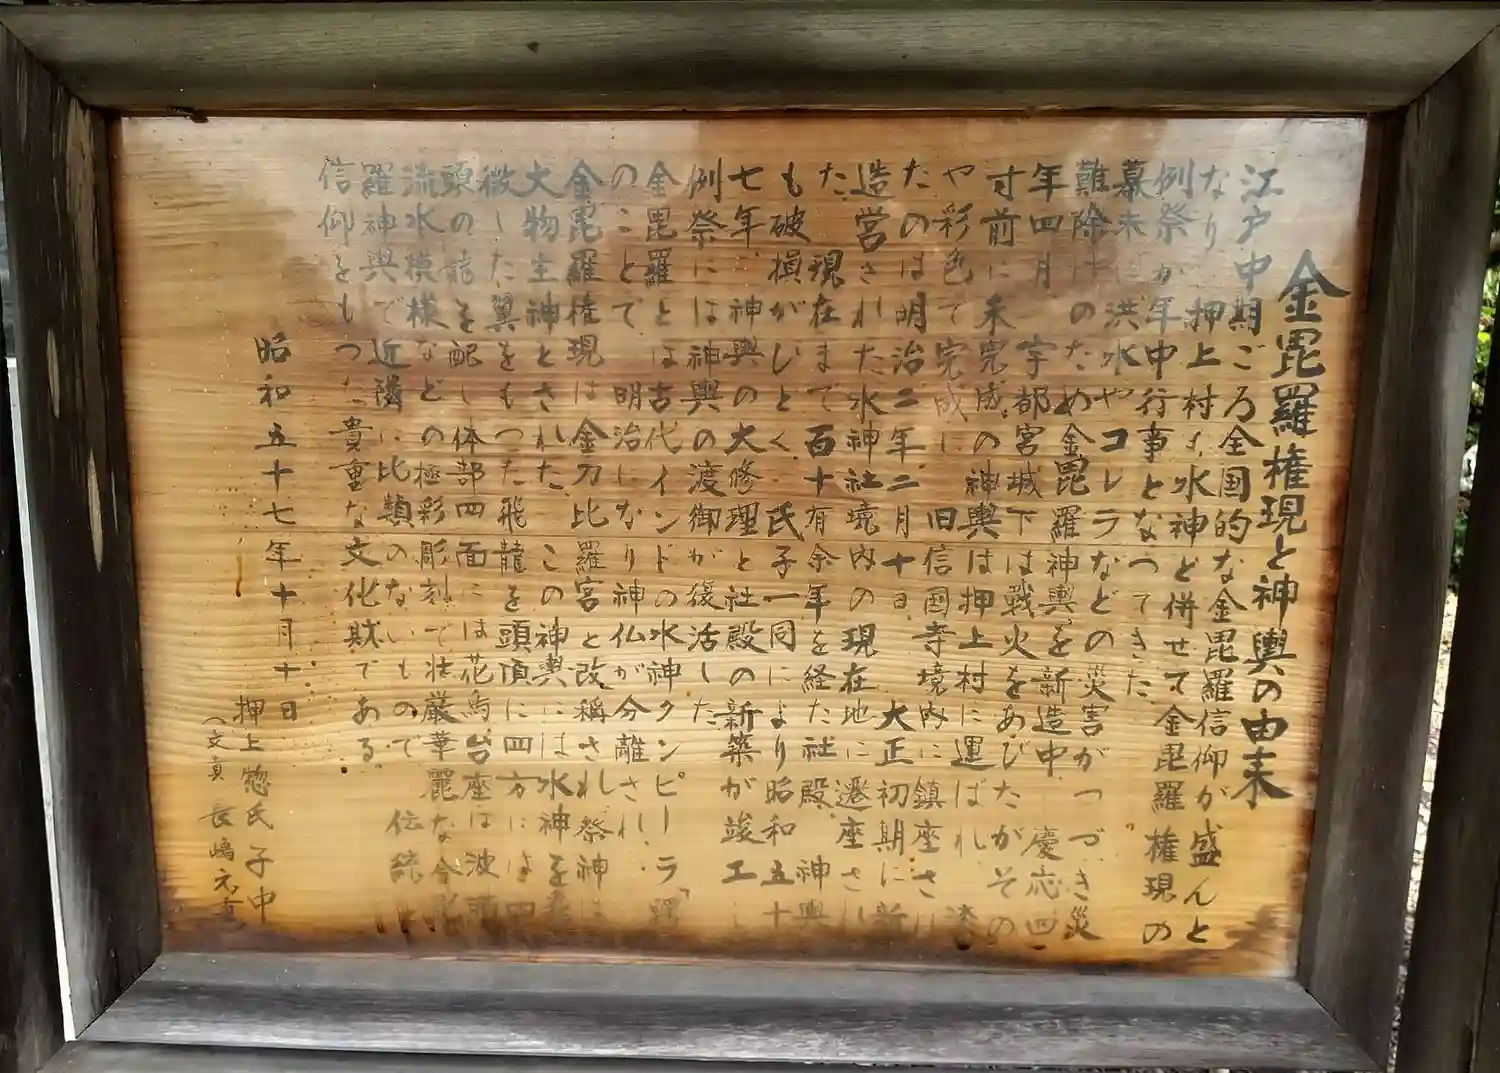 金毘羅権現と神輿の由来
江戸中期ごろ全国的な金毘羅信仰が盛んと
なり 押上村は水神と併せて金毘羅権現の
例祭が年中行事となってきた
幕末に洪水やコレラなどの災害がつづき災
難除けのため金毘羅神輿を新造中 慶応四
年四月 宇都宮城下は戦火をあびたがその
寸前に未完成の神輿は押上村に運ばれ 漆
や彩色で完成し 旧信国寺境内に鎮座され
たのは明治二年二月十日 大正初期に新
造営された水神社境内の現在地に遷座され
た 現在まで百十有余年を経た社殿 神輿
も破損がひどく 氏子一同により昭和五十
七年 神輿の大修理と社殿の新築が竣工し
例祭には神輿の渡御が復活した
金毘羅とは古代インドの水神クンピーラ
のことで 明治になり神仏が分離され
金毘羅権現は金刀比羅宮と改称され祭神は
大物主神とされた この神輿には水神を
微した翼をもつた飛龍を頭頂に四方には四
頭の龍を配し体部四面には花鳥台座は波頭
流水模様などの極彩彫刻で壮厳華麗な金毘
羅神輿で近隣に比類のないもので 伝統
信仰をもつた貴重な文化財である
昭和五十七年十月十日
押上惣氏子中
(文責 長嶋元